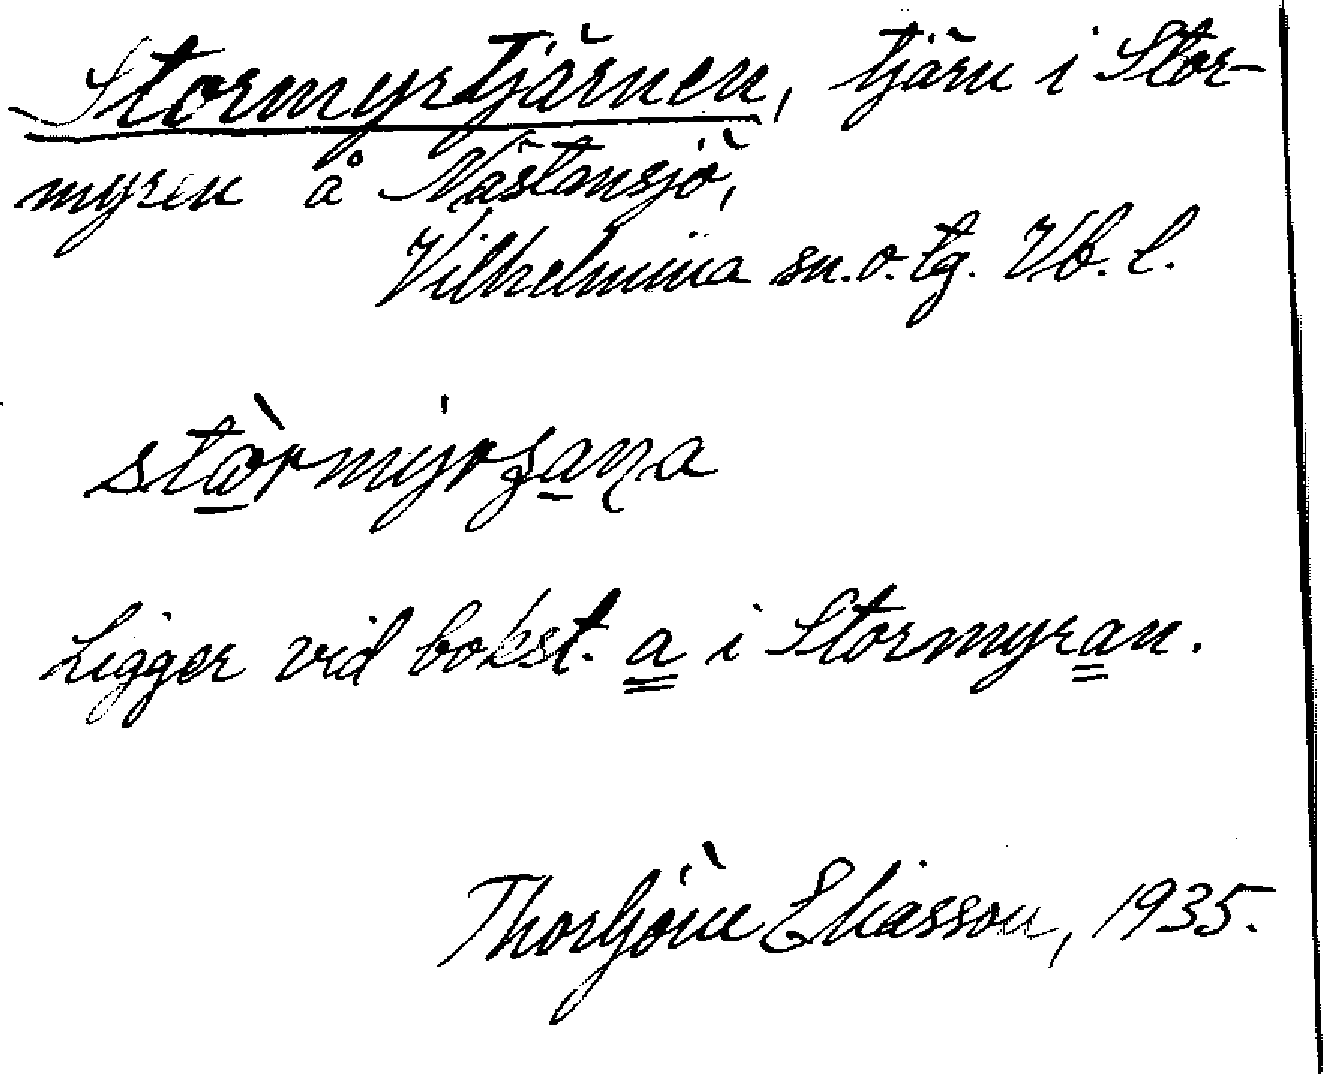 Stormyrtjärnen, tjärn i Stor-
myren å Nästansjö,
Vilhelmina sn. o. tg. Vb. l.
Ligger vid bokst. a i Stormyran.
Thorbjörn Eliasson, 1935.